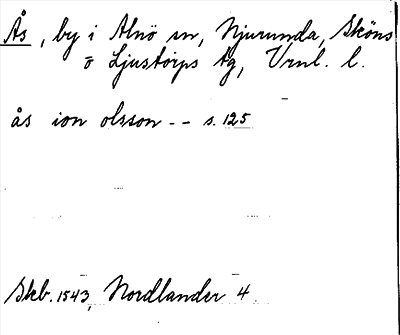 Ås, by i Alnö sn, Njurunda, Sköns
o Ljustorps tg, Vrnl. l.
ås ion olsson -- s. 125
Skb. 1543, Nordlander 4.